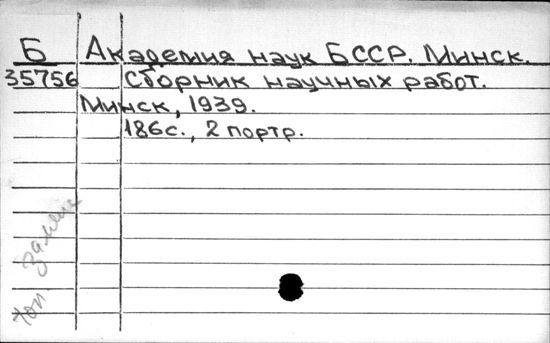 Б Академия наук БССР. Минск.
35756 Сборник научных работ.
Минск, 1939.
186с., 2 портр.